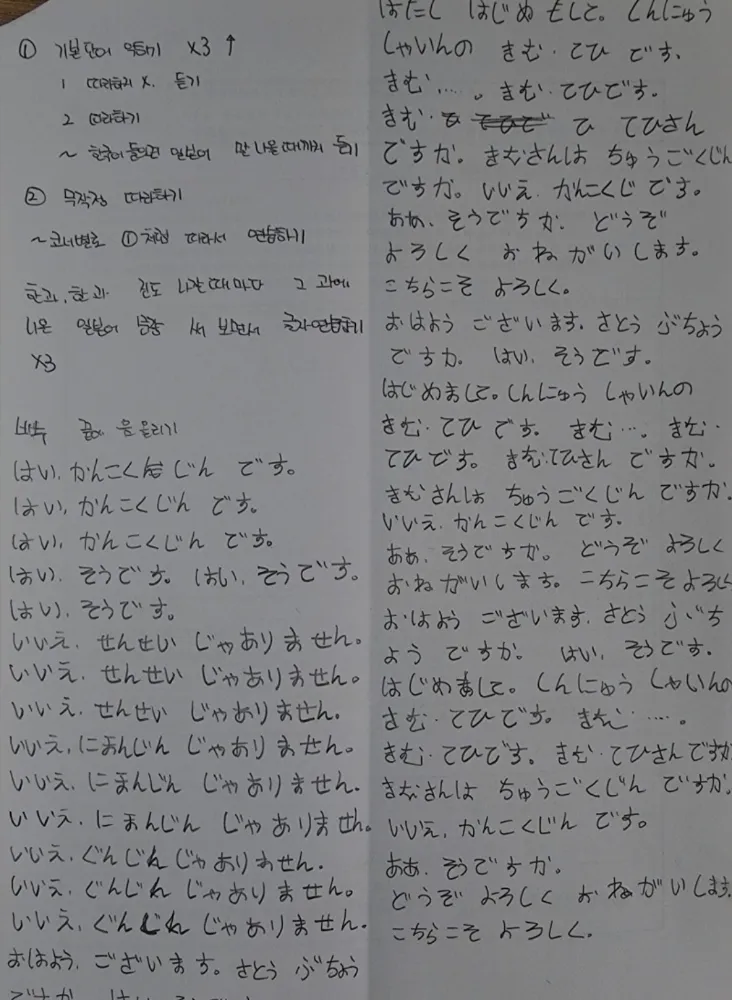 ① 기본단어 익히기 X3 ↑
1 따라하지 X. 듣기
2 따라하기
~ 한국어 들으면 일본어 만 나올 때까지 듣기
② 무작정 따라하기
~ 코너별로 ①처럼 따라서 연습하기
한과, 한과 진도 나갈때마다 그 과에
나온 일본어 문장 써 보면서 글자연습하기
X3
끝에 음 올리기
はい, かんこくじん です。
はい, かんこくじん です。
はい, かんこくじん です。
はい, そうです。 はい, そうです。
はい, そうです。
いいえ, せんせい じゃありません。
いいえ, せんせい じゃありません。
いいえ, せんせい じゃありません.
いいえ, にほんじん じゃありません。
いいえ, にほんじん じゃありません.
いいえ, にほんじん じゃありません。
いいえ, ぐんじん じゃありません.
いいえ, ぐんじん じゃありません。
いいえ, ぐんじん じゃありません.
おはよう, ございます。 さとう ぶちょう
ですか はい そうです
はじめ して。 しんにゅう
しゃいんの きむ・てひ です.
きむ..... 。 きむ・てひです。
きむ・ ひ てひさん
ですか。 きむさんは ちゅうごくじん
ですか。 いいえ, かんこくじ です。
ああ, そうですか. どうぞ
よろしく おねがいします。
こちらこそ よろしく。
おはよう ございます. さとう ぶちょう
ですか. はい, そうです。
はじめまして。しんにゅう しゃいんの
きむ・てひ です。 きむ…。 きむ・
てひです。 きむ・てひさん ですか.
きむさんは ちゅうごくじん ですか.
いいえ, かんこくじん です.
ああ, そうですか。 どうぞ よろしく
おねがいします。 こちらこそ よろし
おはよう ございます. さとう ぶち
ょう ですか. はい, そうです.
はじめまして。 しんにゅう しゃいんの
きむ・てひです。 きむ ..... 。
きむ・てひです。 きむ・てひさんですか
きむさんは ちゅうごくじん ですか.
いいえ, かんこくじん です。
ああ, そうですか.
どうぞ よろしく おねがいします.
こちらこそ よろしく.